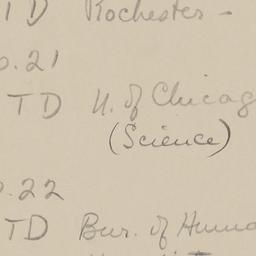 TD Rochester -
p.21
TD U. of Chicag
(Science)
p.22
TD Bur. of Huma